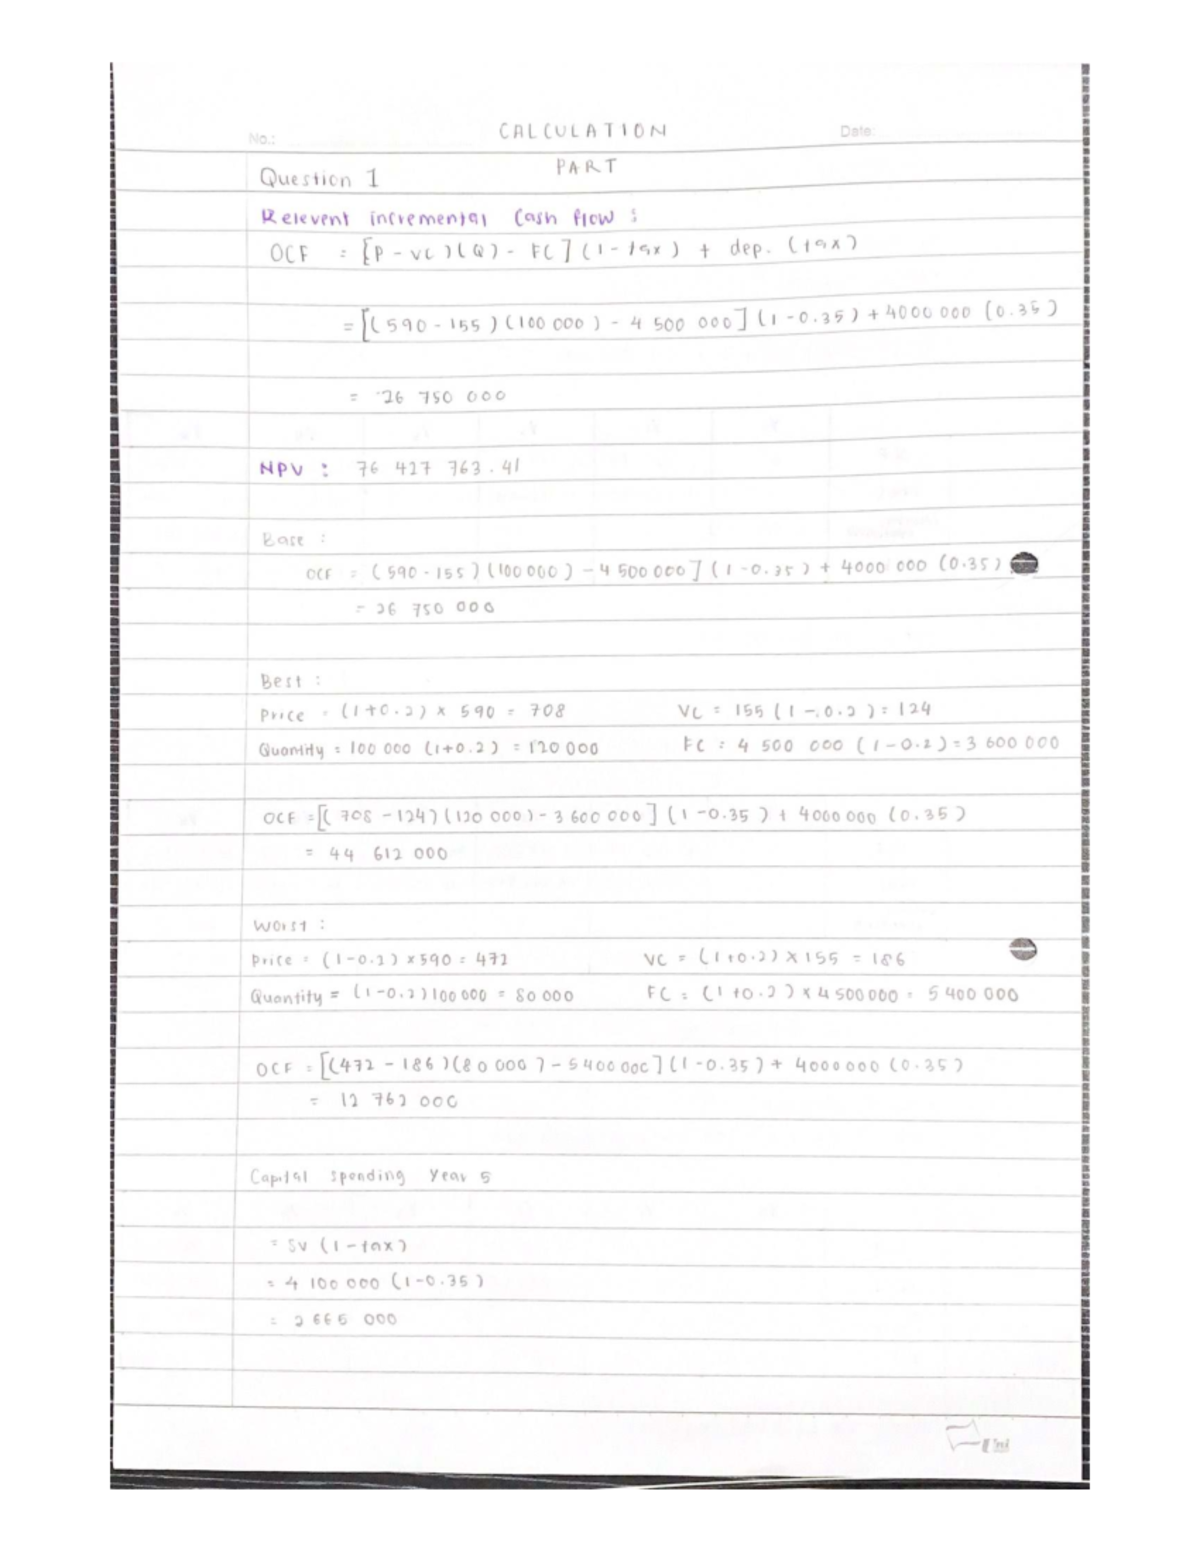 No.: CALCULATION Date:
PART
Question 1
Relevent incremental Cash flow :
OCF = [P - VC)(Q) - FC] (1 - tax) + dep. (tax)
= [(590 - 155)(100 000) - 4 500 000] (1 - 0.35) + 4000 000 (0.35)
= 26 750 000
NPV : 76 427 763.41
Base :
OCF = (590 - 155)(100 000) - 4 500 000] (1 - 0.35) + 4000 000 (0.35)
= 26 750 000
Best :
Price = (1+0.2) × 590 = 708 VC = 155 (1 - 0.2) = 124
Quantity = 100 000 (1+0.2) = 120 000 FC = 4 500 000 (1 - 0.2) = 3 600 000
OCF = [(708 - 124)(120 000) - 3 600 000] (1 - 0.35) + 4000 000 (0.35)
= 44 612 000
Worst :
Price = (1 - 0.2) × 590 = 472 VC = (1+0.2) × 155 = 186
Quantity = (1 - 0.2) 100 000 = 80 000 FC = (1+0.2) × 4 500 000 = 5 400 000
OCF = [(472 - 186)(80 000) - 5 400 000] (1 - 0.35) + 4000 000 (0.35)
= 12 762 000
Capital spending Year 5
= SV (1 - tax)
= 4 100 000 (1 - 0.35)
= 2 665 000